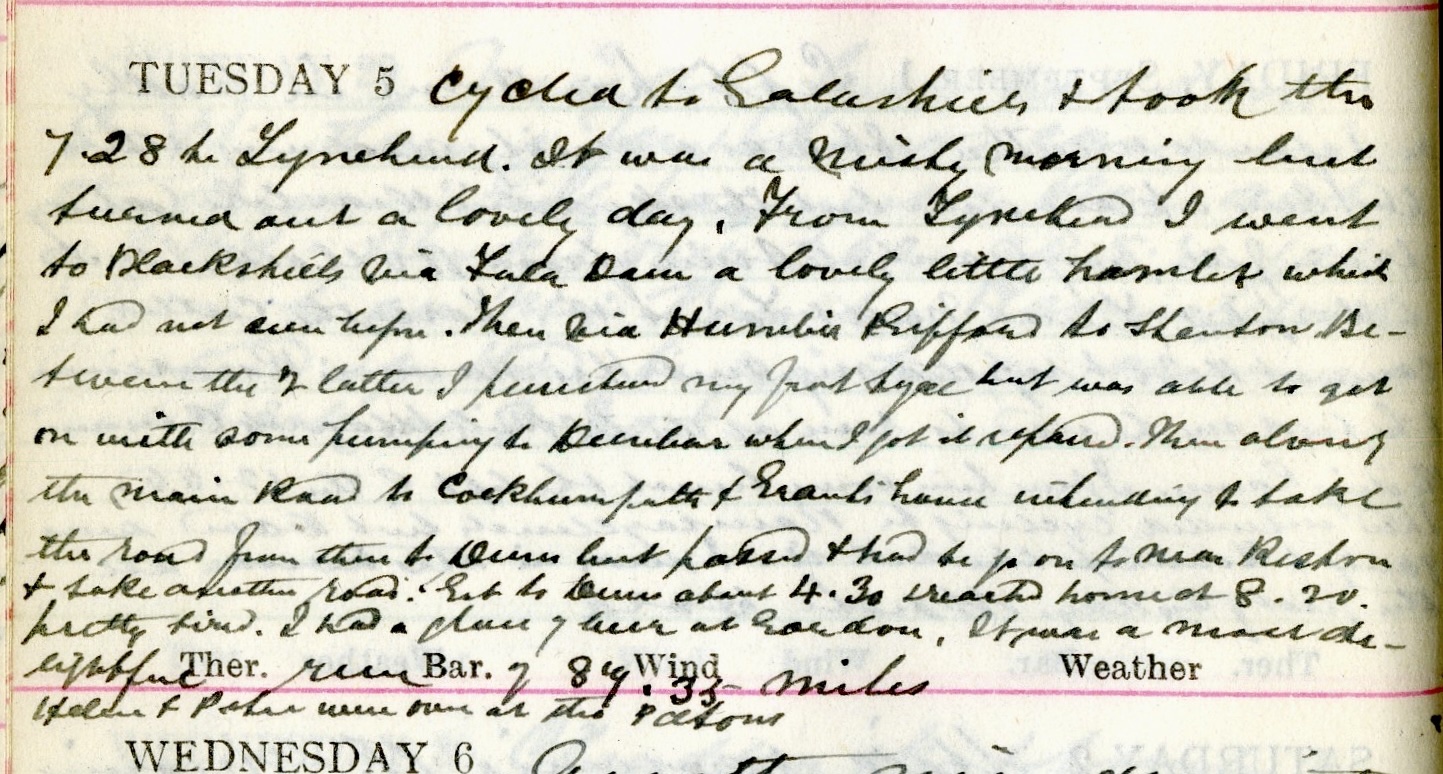 TUESDAY 5 Cycled to Galashiels & took the
7.28 to Tynehead. It was a misty morning but
turned out a lovely day. From Tynehead I went
to Blackshiels via Fala Dam a lovely little hamlet which
I had not seen before. Then via Humbie Giffard to Stenton. Be-
tween the 2 latter I punctured my front tyre but was able to get
on with some pumping to Dunbar when I got it repaired. Then along
the main Road to Cockburnspath & Grantshouse intending to take
the road from there to Duns but passed & had to go on to near Reston
& take another road. Got to Duns about 4.30 & reached home at 8.20.
pretty tired. I had a glass of beer at Gordon. It was a most de-
lightful Ther. run Bar. of 89.35 Wind miles Weather
Helen & Peter were over at the Patons
WEDNESDAY 6